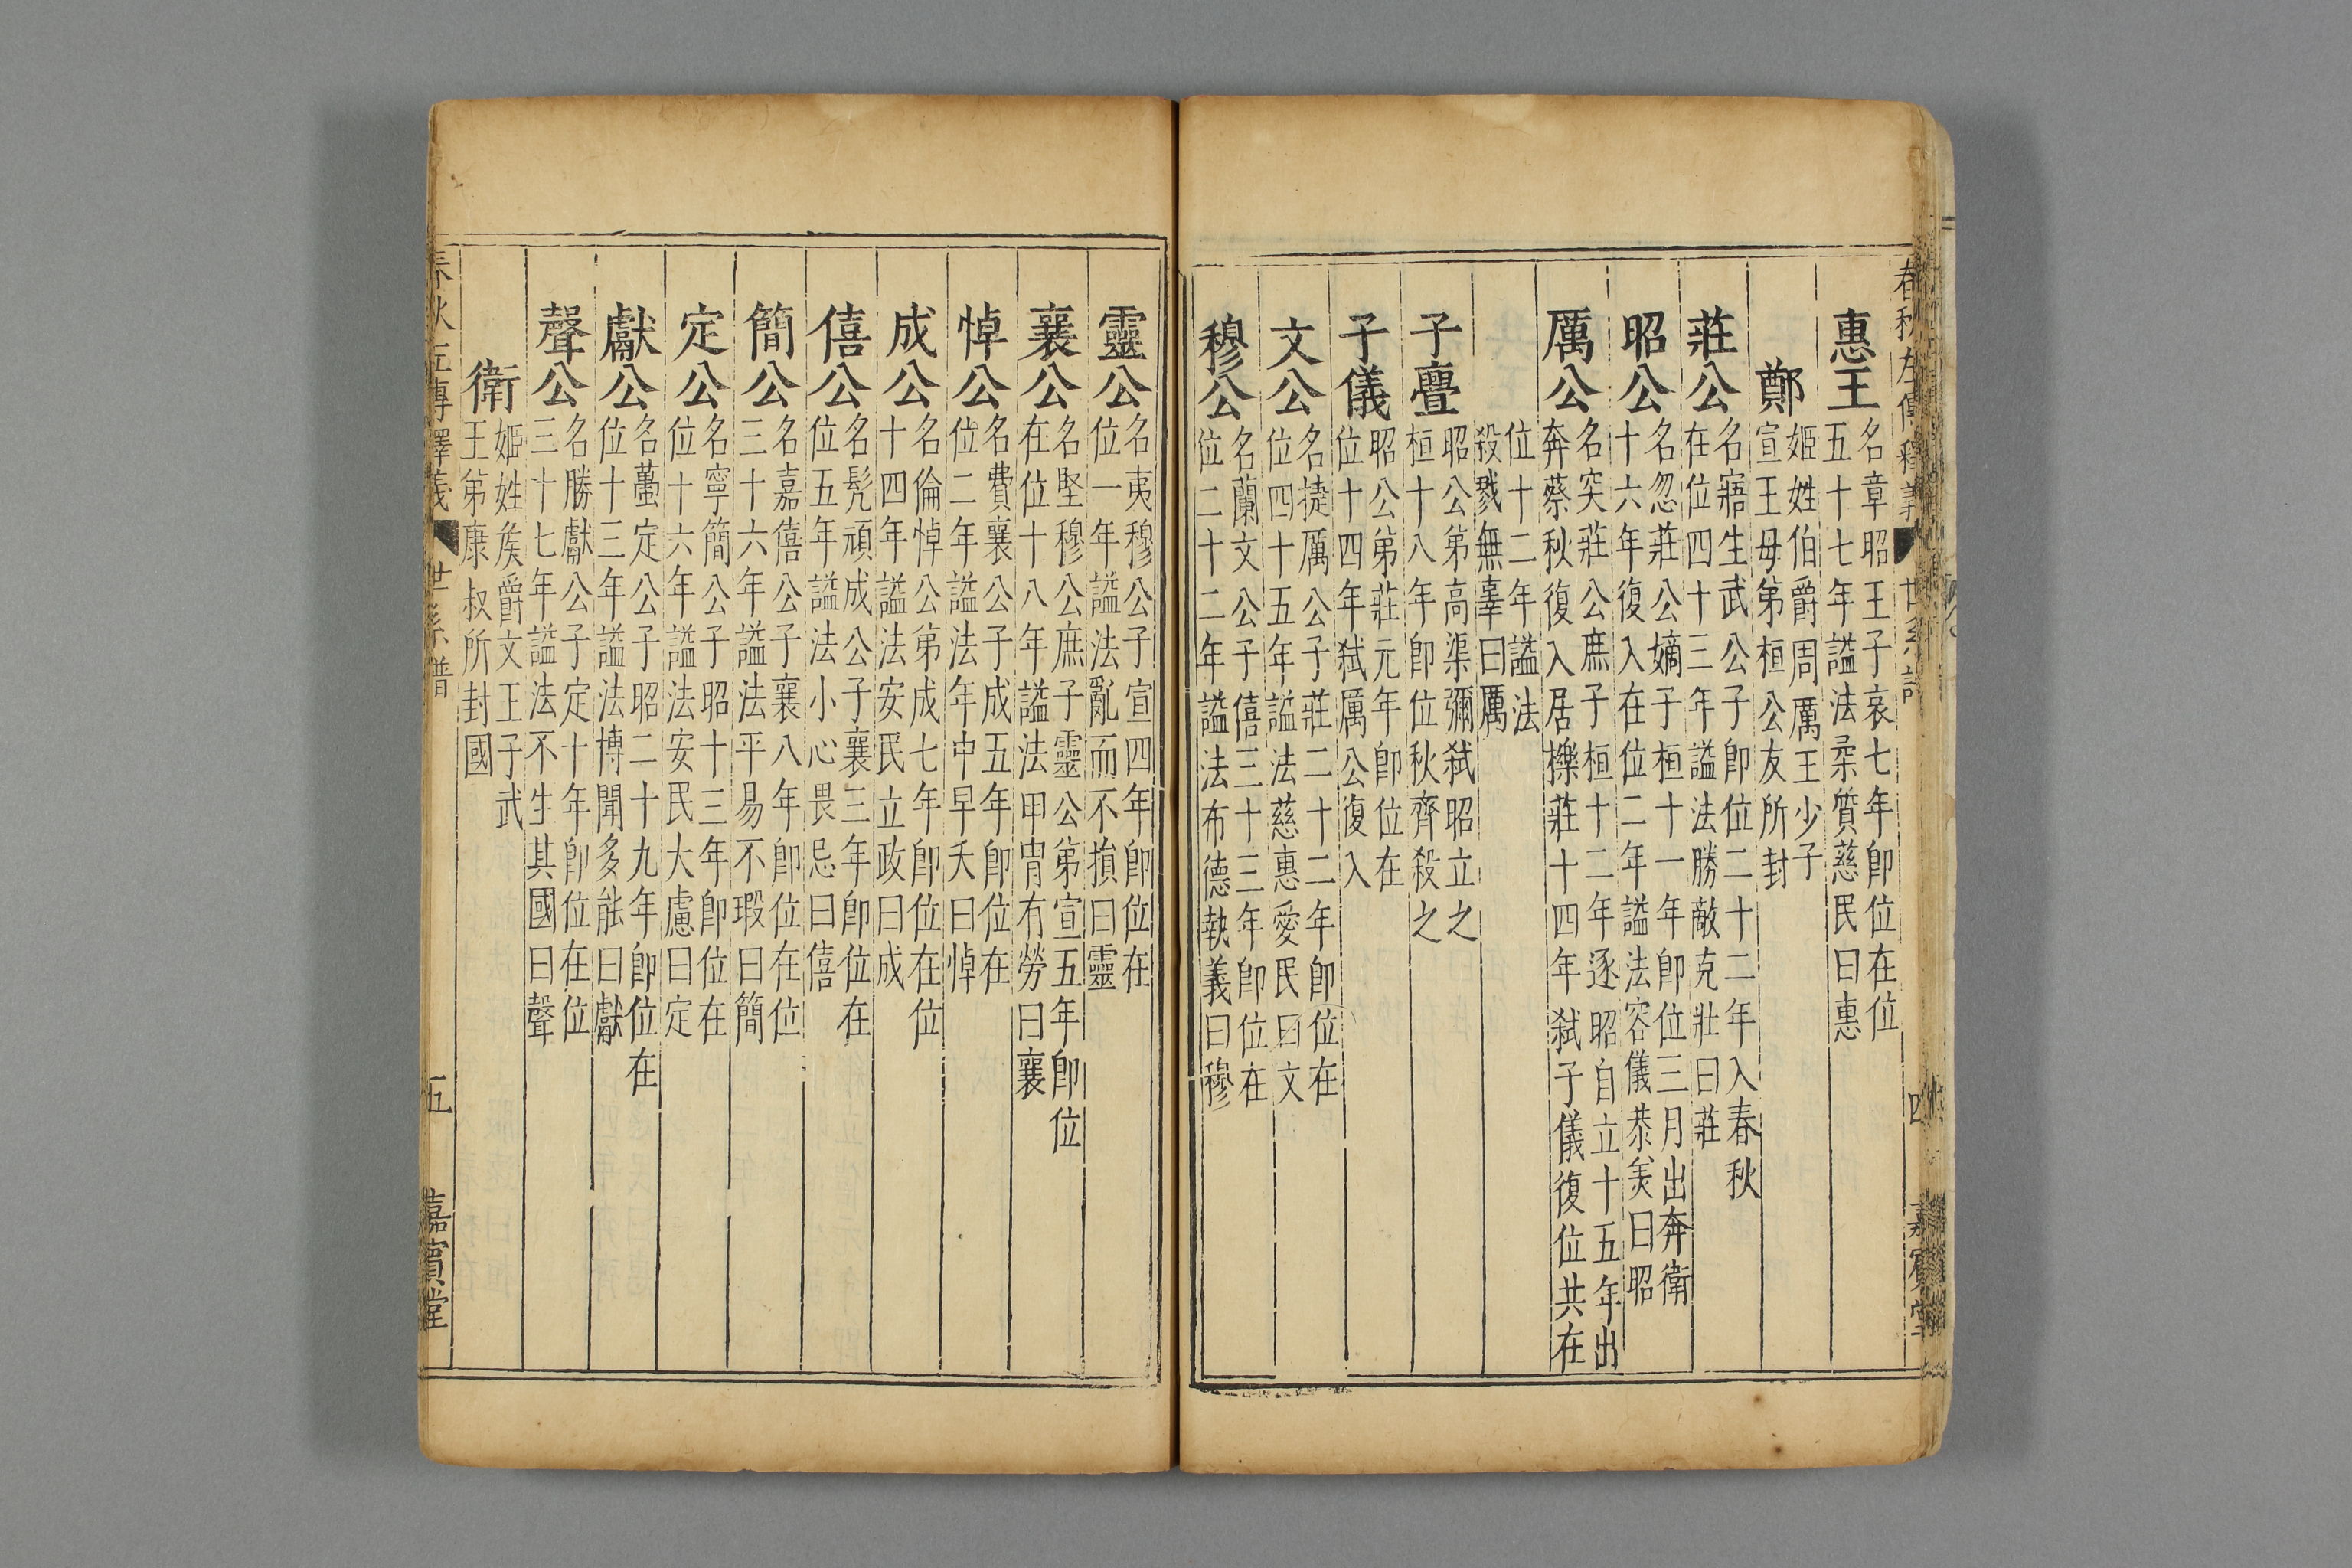 春秋左傳釋義 世系譜 四 嘉賓堂
惠王 名章昭王子哀七年卽位在位
五十七年謚法柔質慈民曰惠
鄭 姬姓伯爵周厲王少子
宣王母第桓公友所封
莊公 名寤生武公子卽位二十二年入春秋
在位四十三年謚法勝敵克壯曰莊
昭公 名忽莊公嫡子桓十一年卽位三月出奔衛
十六年復入在位二年謚法容儀恭羙曰昭
厲公 名突莊公庶子桓十二年逐昭自立十五年出
奔蔡秋復入居櫟莊十四年弑子儀復位共在
位十二年謚法
殺戮無辜曰厲
子亹 昭公第高渠彌弑昭立之
桓十八年卽位秋齊殺之
子儀 昭公第莊元年卽位在
位十四年弑厲公復入
文公 名捷厲公子莊二十二年卽位在
位四十五年謚法慈惠愛民曰文
穆公 名蘭文公子僖三十三年卽位在
位二十二年謚法布德執義曰穆
靈公 名夷穆公子宣四年卽位在
位一年謚法亂而不損曰靈
襄公 名堅穆公庶子靈公第宣五年卽位
在位十八年謚法甲冑有勞曰襄
悼公 名費襄公子成五年卽位在
位二年謚法年中早夭曰悼
成公 名倫悼公第成七年卽位在位
十四年謚法安民立政曰成
僖公 名髡頑成公子襄三年卽位在
位五年謚法小心畏忌曰僖
簡公 名嘉僖公子襄八年卽位在位
三十六年謚法平易不瑕曰簡
定公 名寧簡公子昭十三年卽位在
位十六年謚法安民大慮曰定
獻公 名蠆定公子昭二十九年卽位在
位十三年謚法博聞多能曰獻
聲公 名勝獻公子定十年卽位在位
三十七年謚法不生其國曰聲
衛 姬姓矦爵文王子武
王第康叔所封國
春秋左傳釋義 世系譜 五 嘉賓堂